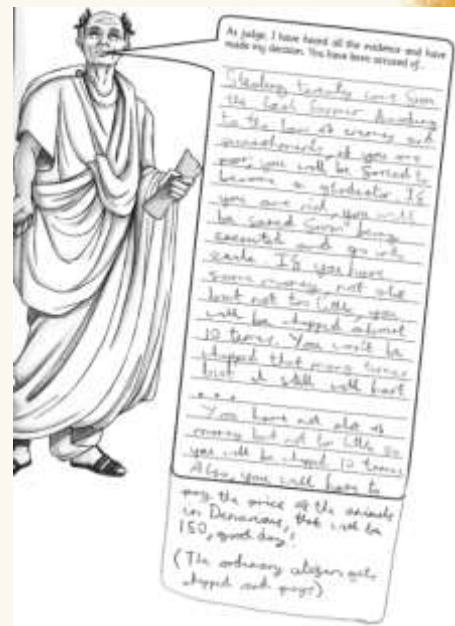 As judge, I have heard all the evidence and have
made my decision. You have been accused of...
Stealing twenty cows from
the local farmer. According
to the law of crimes and
punishments, if you are
poor, you will be forced to
become a gladiator. If
you are rich, you will
be saved from being
executed and go into
exile. If you have
some money, not alot
but not too little, you
will be whipped about
10 times. You won't be
whipped that many times
but it still will hurt
...
You have not alot of
money but not too little so
you will be whipped 10 times.
Also, you will have to
pay the price of the animals
in Denarius, that will be
150, good day!
(The ordinary citizen gets
whipped and pays)